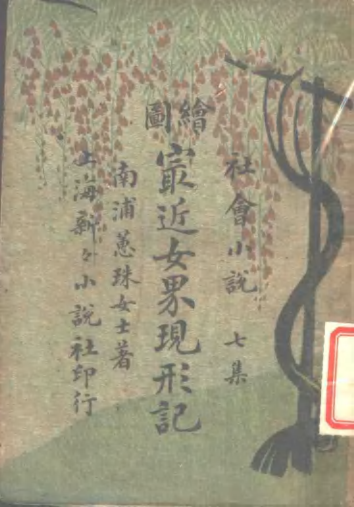 社會小說 七集
繪圖
㝡近女界現形記
南浦蕙珠女士著
上海新々小說社印行